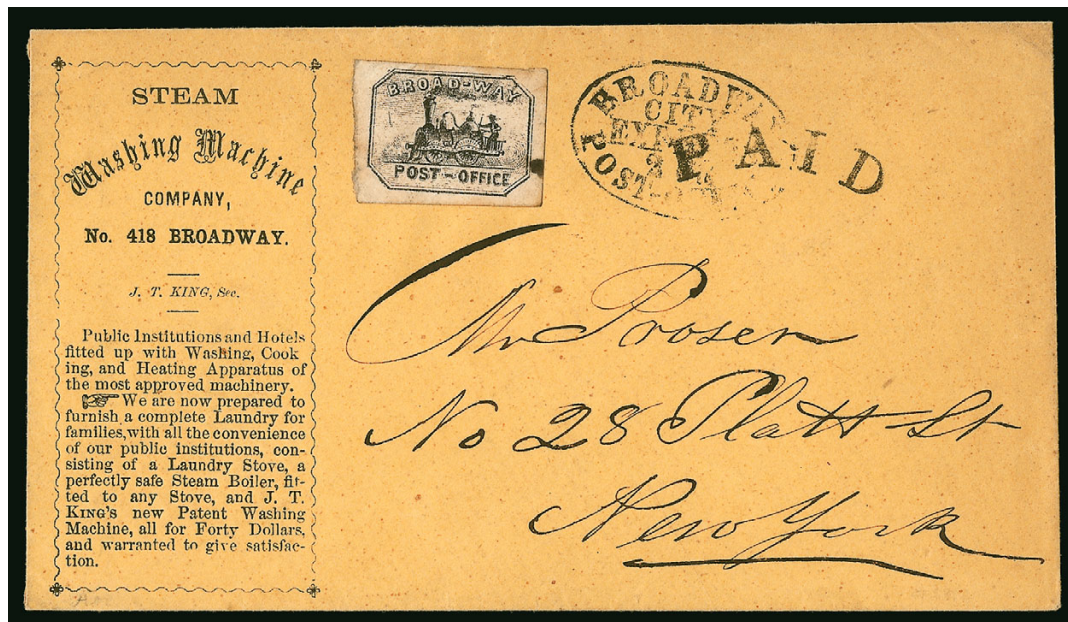 STEAM
Washing Machine
COMPANY,
No. 418 BROADWAY.
J. T. KING, Sec.
Public Institutions and Hotels
fitted up with Washing, Cook
ing, and Heating Apparatus of
the most approved machinery.
☞ We are now prepared to
furnish a complete Laundry for
families, with all the convenience
of our public institutions, con-
sisting of a Laundry Stove, a
perfectly safe Steam Boiler, fit-
ted to any Stove, and J. T.
KING'S new Patent Washing
Machine, all for Forty Dollars,
and warranted to give satisfac-
tion.
BROAD-WAY
POST-OFFICE
BROADWAY
CITY
POST-
PAID
Mr Proser
No 28 Platt St
New York